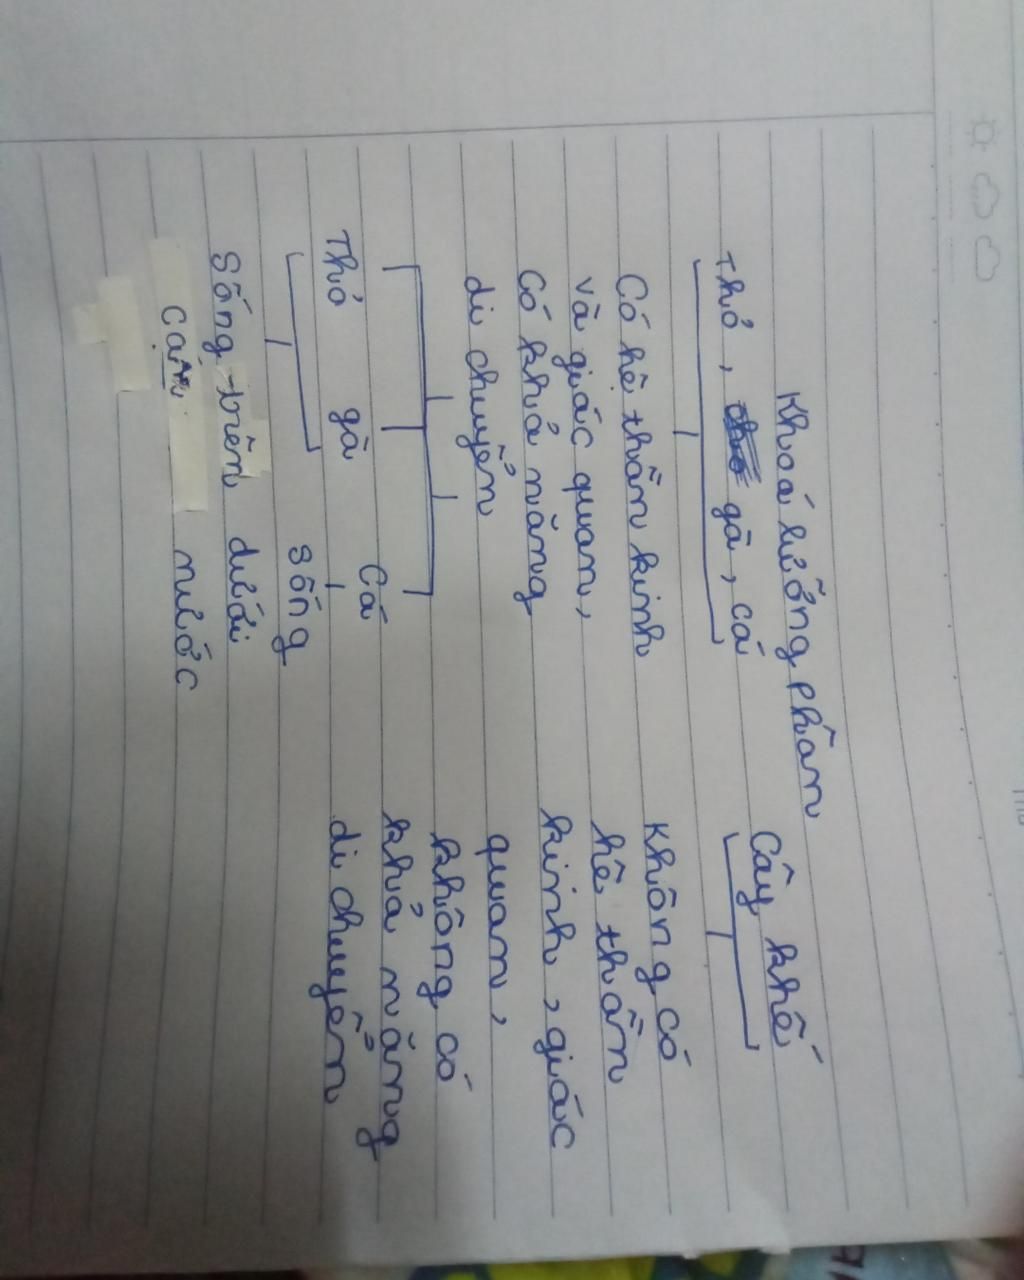 Khoá lưỡng phân
Thỏ, gà, cá
Cây khế
Có hệ thần kinh
và giác quan,
Có khả năng
di chuyển
Không có
hê thần
kinh, giác
quan,
không có
khả năng
di chuyển
Thỏ gà Cá
Sống trên
cạn
sống
dưới
nước